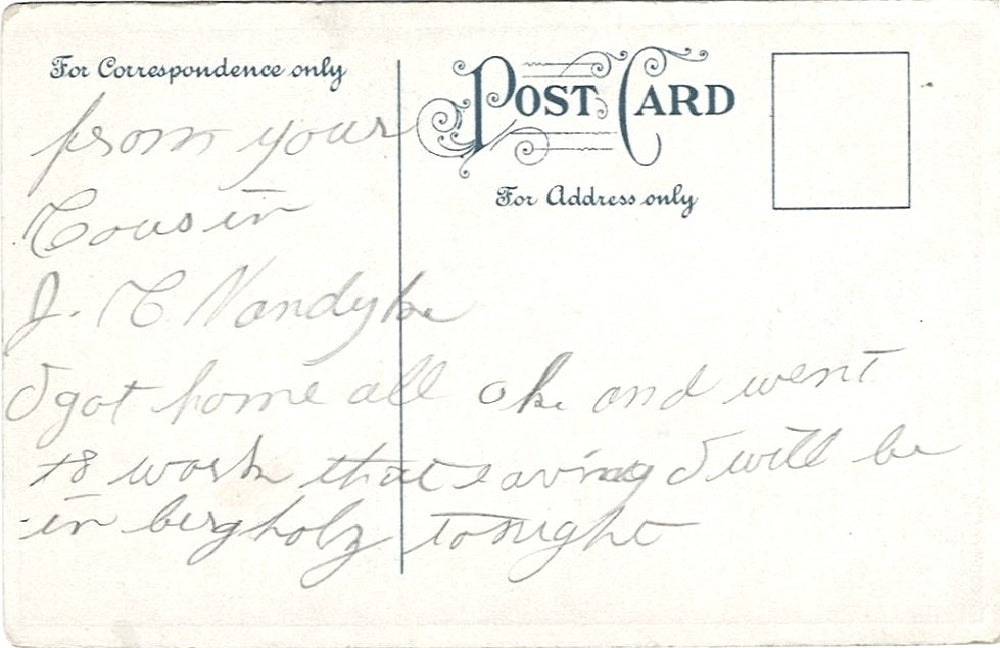 For Correspondence only
POST CARD
For Address only
from your
Cousin
J. C Vandyke
I got home all ok and went
to work that eavning I will be
in bergholz tonight